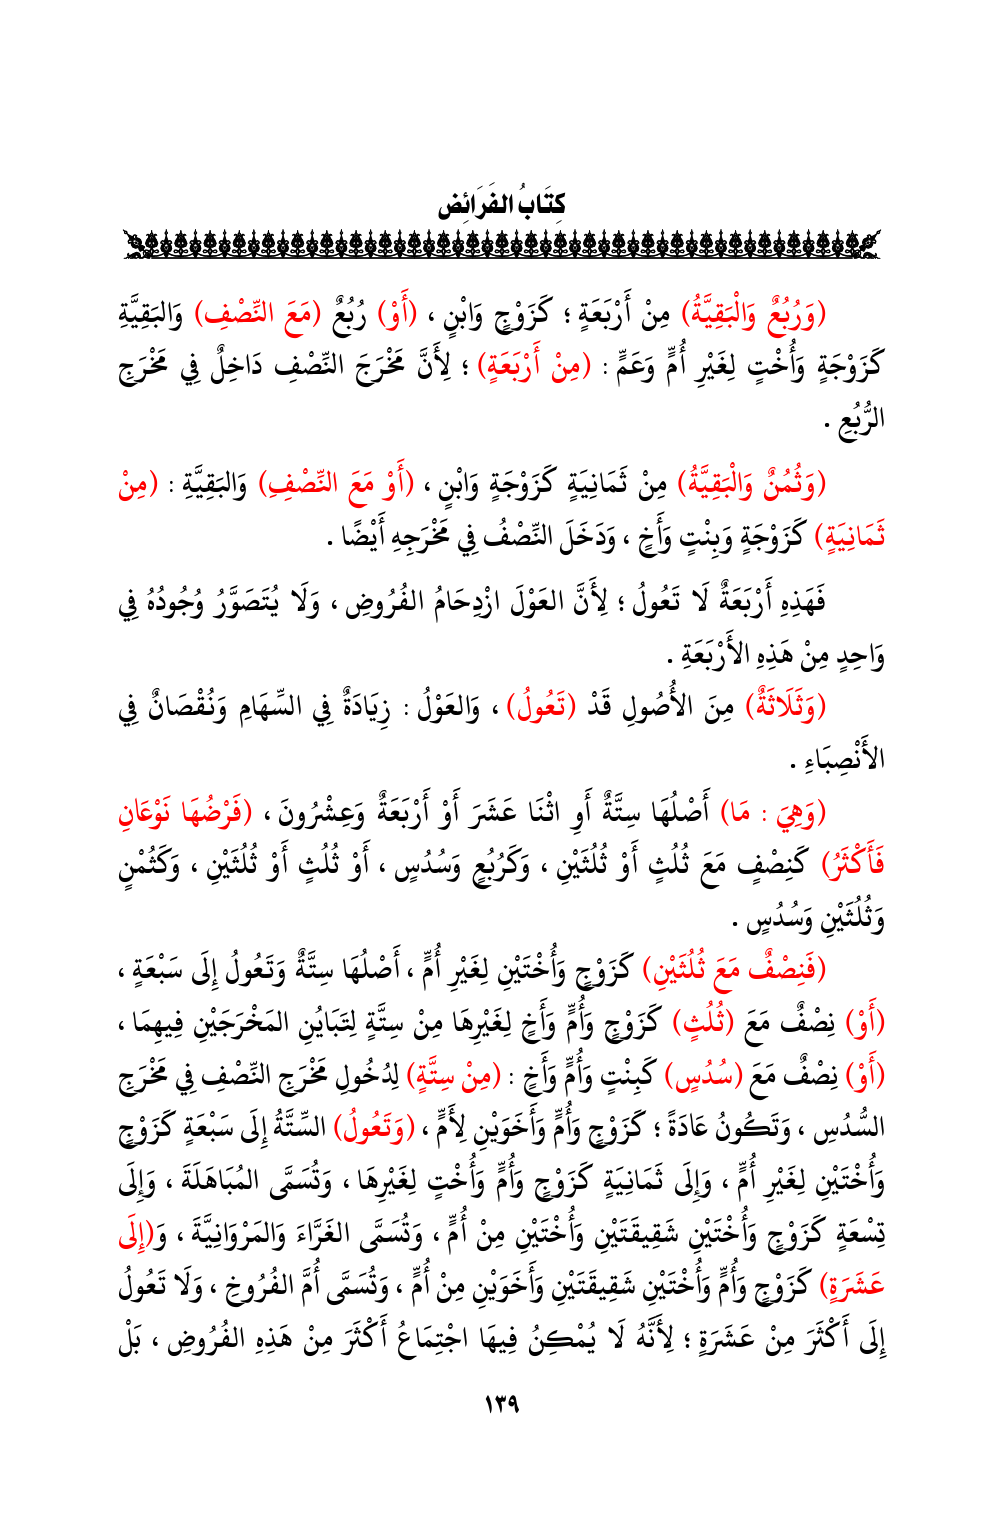 كِتَابُ الفَرَائِض
(وَرُبُعٌ وَالْبَقِيَّةُ) مِنْ أَرْبَعَةٍ ؛ كَزَوْجٍ وَابْنٍ ، (أَوْ) رُبُعٌ (مَعَ النِّصْفِ) وَالبَقِيَّةِ
كَزَوْجَةٍ وَأُخْتٍ لِغَيْرِ أُمٍّ وَعَمٍّ : (مِنْ أَرْبَعَةٍ) ؛ لِأَنَّ مَخْرَجَ النِّصْفِ دَاخِلٌ فِي مَخْرَجِ
الرُّبُعِ .
(وَثُمُنٌ وَالْبَقِيَّةُ) مِنْ ثَمَانِيَةٍ كَزَوْجَةٍ وَابْنٍ ، (أَوْ مَعَ النِّصْفِ) وَالبَقِيَّةِ : (مِنْ
ثَمَانِيَةٍ) كَزَوْجَةٍ وَبِنْتٍ وَأَخٍ ، وَدَخَلَ النِّصْفُ فِي مَخْرَجِهِ أَيْضًا .
فَهَذِهِ أَرْبَعَةٌ لَا تَعُولُ ؛ لِأَنَّ العَوْلَ ازْدِحَامُ الفُرُوضِ ، وَلَا يُتَصَوَّرُ وُجُودُهُ فِي
وَاحِدٍ مِنْ هَذِهِ الأَرْبَعَةِ .
(وَثَلَاثَةٌ) مِنَ الأُصُولِ قَدْ (تَعُولُ) ، وَالعَوْلُ : زِيَادَةٌ فِي السِّهَامِ وَنُقْصَانٌ فِي
الأَنْصِبَاءِ .
(وَهِيَ : مَا) أَصْلُهَا سِتَّةٌ أَوِ اثْنَا عَشَرَ أَوْ أَرْبَعَةٌ وَعِشْرُونَ ، (فَرْضُهَا نَوْعَانِ
فَأَكْثَرُ) كَنِصْفٍ مَعَ ثُلُثٍ أَوْ ثُلُثَيْنِ ، وَكَرُبُعٍ وَسُدُسٍ ، أَوْ ثُلُثٍ أَوْ ثُلُثَيْنِ ، وَكَثُمْنٍ
وَثُلُثَيْنِ وَسُدُسٍ .
(فَنِصْفٌ مَعَ ثُلُثَيْنِ) كَزَوْجٍ وَأُخْتَيْنِ لِغَيْرِ أُمٍّ ، أَصْلُهَا سِتَّةٌ وَتَعُولُ إِلَى سَبْعَةٍ ،
(أَوْ) نِصْفٌ مَعَ (ثُلُثٍ) كَزَوْجٍ وَأُمٍّ وَأَخٍ لِغَيْرِهَا مِنْ سِتَّةٍ لِتَبَايُنِ المَخْرَجَيْنِ فِيهِمَا ،
(أَوْ) نِصْفٌ مَعَ (سُدُسٍ) كَبِنْتٍ وَأُمٍّ وَأَخٍ : (مِنْ سِتَّةٍ) لِدُخُولِ مَخْرَجِ النِّصْفِ فِي مَخْرَجِ
السُّدُسِ ، وَتَكُونُ عَادَةً ؛ كَزَوْجٍ وَأُمٍّ وَأَخَوَيْنِ لِأَمٍّ ، (وَتَعُولُ) السِّتَّةُ إِلَى سَبْعَةٍ كَزَوْجٍ
وَأُخْتَيْنِ لِغَيْرِ أُمٍّ ، وَإِلَى ثَمَانِيَةٍ كَزَوْجٍ وَأُمٍّ وَأُخْتٍ لِغَيْرِهَا ، وَتُسَمَّى المُبَاهَلَةَ ، وَإِلَى
تِسْعَةٍ كَزَوْجٍ وَأُخْتَيْنِ شَقِيقَتَيْنِ وَأُخْتَيْنِ مِنْ أُمٍّ ، وَتُسَمَّى الغَرَّاءَ وَالمَرْوَانِيَّةَ ، وَ(إِلَى
عَشَرَةٍ) كَزَوْجٍ وَأُمٍّ وَأُخْتَيْنِ شَقِيقَتَيْنِ وَأَخَوَيْنِ مِنْ أُمٍّ ، وَتُسَمَّى أُمَّ الفُرُوخِ ، وَلَا تَعُولُ
إِلَى أَكْثَرَ مِنْ عَشَرَةٍ ؛ لِأَنَّهُ لَا يُمْكِنُ فِيهَا اجْتِمَاعُ أَكْثَرَ مِنْ هَذِهِ الفُرُوضِ ، بَلْ
١٣٩